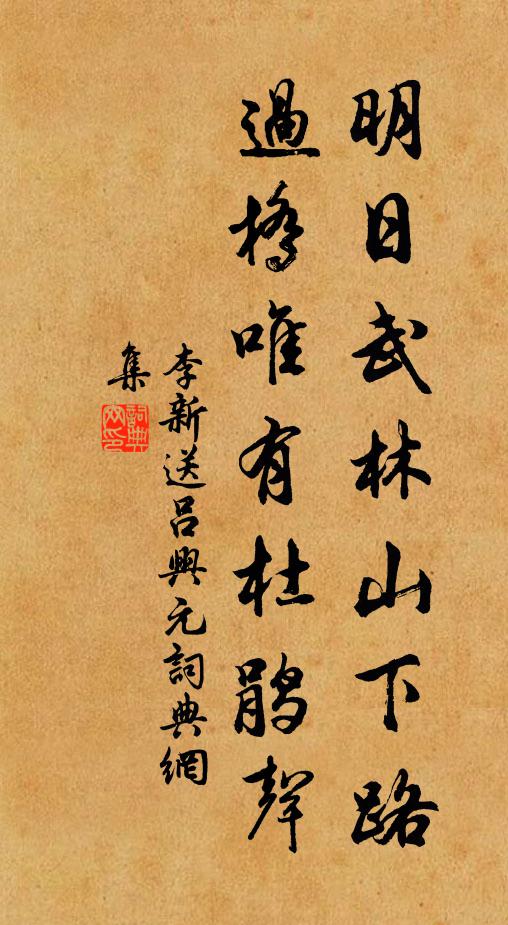 明日武林山下路
過橋唯有杜鵑聲
李新送呂興元詞典網
集
詞典網印